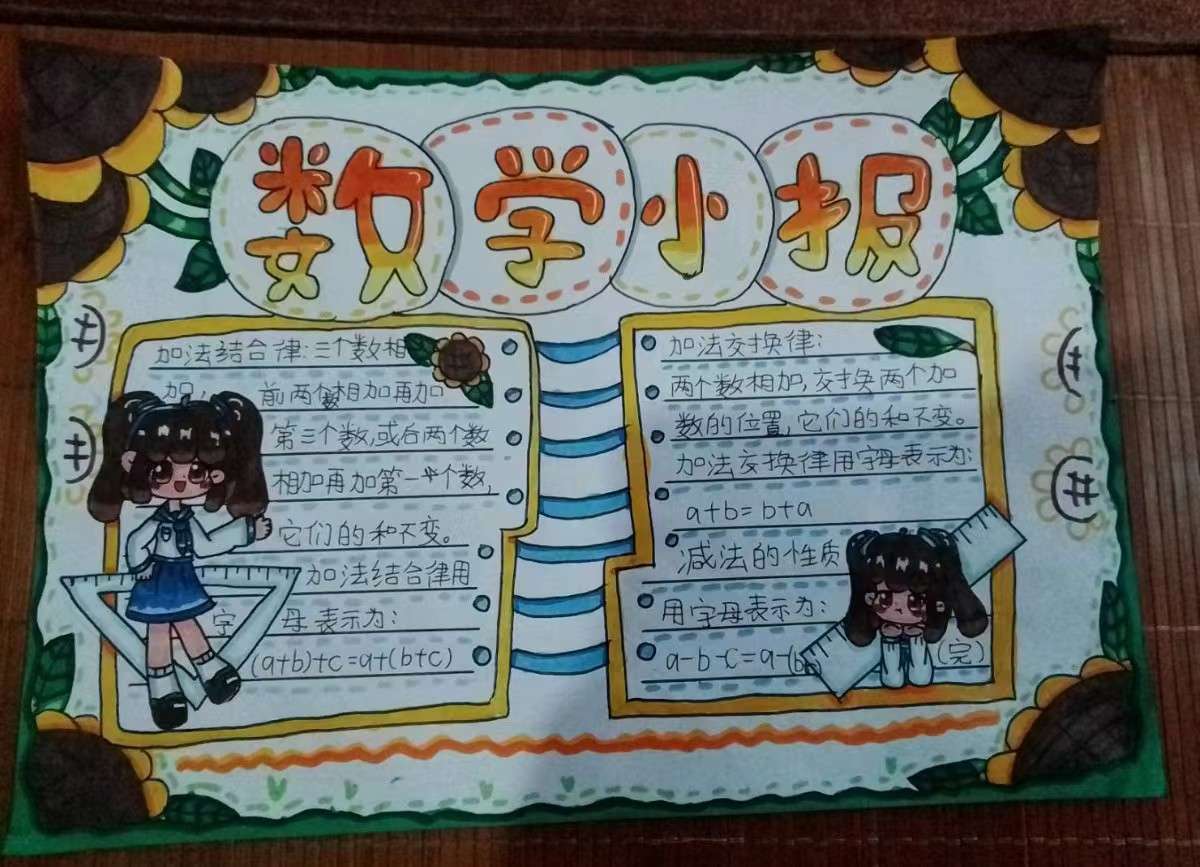 数学小报
加法结合律:三个数相
加, 前两个数相加再加
第三个数,或后两个数
相加再加第一个数,
它们的和不变。
加法结合律用
字母表示为:
(a+b)+c=a+(b+c)
加法交换律:
两个数相加,交换两个加
数的位置,它们的和不变。
加法交换律用字母表示为:
a+b=b+a
减法的性质
用字母表示为:
a-b-c=a-(b
(完)